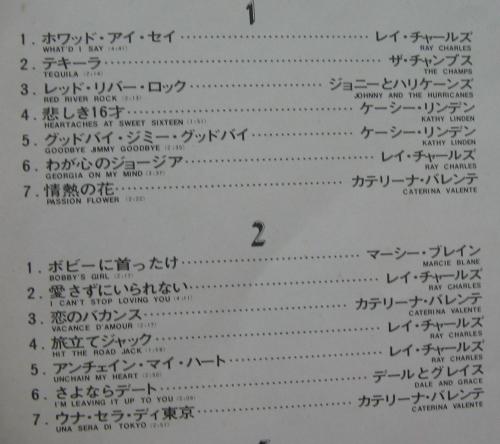 1
1. ホワッド・アイ・セイ レイ・チャールズ
WHAT'D I SAY (4:41) RAY CHARLES
2. テキーラ ザ・チャンプス
TEQUILA (2:14) THE CHAMPS
3. レッド・リバー・ロック ジョニーとハリケーンズ
RED RIVER ROCK (2:13) JOHNNY AND THE HURRICANES
4. 悲しき16才 ケーシー・リンデン
HEARTACHES AT SWEET SIXTEEN (1:51) KATHY LINDEN
5. グッドバイ・ジミー・グッドバイ ケーシー・リンデン
GOODBYE JIMMY GOODBYE (2:35) KATHY LINDEN
6. わが心のジョージア レイ・チャールズ
GEORGIA ON MY MIND (3:37) RAY CHARLES
7. 情熱の花 カテリーナ・バレンテ
PASSION FLOWER (2:32) CATERINA VALENTE
2
1. ボビーに首ったけ マーシー・ブレイン
BOBBY'S GIRL (2:17) MARCIE BLANE
2. 愛さずにいられない レイ・チャールズ
I CAN'T STOP LOVING YOU (4:11) RAY CHARLES
3. 恋のバカンス カテリーナ・バレンテ
VACANCE D'AMOUR (2:17) CATERINA VALENTE
4. 旅立てジャック レイ・チャールズ
HIT THE ROAD JACK (1:58) RAY CHARLES
5. アンチェイン・マイ・ハート レイ・チャールズ
UNCHAIN MY HEART (2:50) RAY CHARLES
6. さよならデート デールとグレイス
I'M LEAVING IT UP TO YOU (2:09) DALE AND GRACE
7. ウナ・セラ・ディ東京 カテリーナ・バレンテ
UNA SERA DI TOKYO (2:51) CATERINA VALENTE